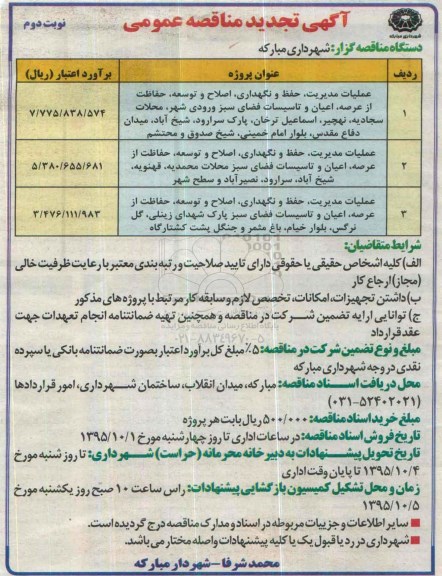 آگهی تجدید مناقصه عمومی
نوبت دوم
شهرداری مبارکه
دستگاه مناقصه گزار: شهرداری مبارکه
ردیف
عنوان پروژه
برآورد اعتبار (ریال)
۱
عملیات مدیریت، حفظ و نگهداری، اصلاح و توسعه، حفاظت
از عرصه، اعیان و تاسیسات فضای سبز ورودی شهر، محلات
سجادیه، نهچیر، اسماعیل ترخان، پارک سرارود، شیخ آباد، میدان
دفاع مقدس، بلوار امام خمینی، شیخ صدوق و محتشم
۷/۷۷۵/۸۳۸/۵۷۴
۲
عملیات مدیریت، حفظ و نگهداری، اصلاح و توسعه، حفاظت از
عرصه، اعیان و تاسیسات فضای سبز محلات محمدیه، قهنویه،
شیخ آباد، سرارود، نصیرآباد و سطح شهر
۵/۳۸۰/۶۵۵/۶۸۱
۳
عملیات مدیریت، حفظ و نگهداری، اصلاح و توسعه، حفاظت از
عرصه، اعیان و تاسیسات فضای سبز پارک شهدای زینلی، گل
نرگس، بلوار خیام، باغ مثمر و جنگل پشت کشتارگاه
۳/۴۷۶/۱۱۱/۹۸۳
شرایط متقاضیان:
الف) کلیه اشخاص حقیقی یا حقوقی دارای تایید صلاحیت و رتبه بندی معتبر با رعایت ظرفیت خالی
(مجاز) ارجاع کار
ب) داشتن تجهیزات، امکانات، تخصص لازم و سابقه کار مرتبط با پروژه های مذکور
ج) توانایی ارایه تضمین شرکت در مناقصه و همچنین تهیه ضمانتنامه انجام تعهدات جهت
عقد قرارداد
مبلغ و نوع تضمین شرکت در مناقصه: ۵٪ مبلغ کل برآورد اعتبار بصورت ضمانتنامه بانکی یا سپرده
نقدی در وجه شهرداری مبارکه
محل دریافت اسناد مناقصه: مبارکه، میدان انقلاب، ساختمان شهرداری، امور قراردادها
(۰۳۱-۵۲۴۰۲۰۲۱)
مبلغ خرید اسناد مناقصه: ۵۰۰/۰۰۰ ریال بابت هر پروژه
تاریخ فروش اسناد مناقصه: در ساعات اداری تا روز چهارشنبه مورخ ۱۳۹۵/۱۰/۱
تاریخ تحویل پیشنهادات به دبیرخانه محرمانه (حراست) شهرداری: تا روز شنبه مورخ
۱۳۹۵/۱۰/۴ تا پایان وقت اداری
زمان و محل تشکیل کمیسیون بازگشایی پیشنهادات: راس ساعت ۱۰ صبح روز یکشنبه مورخ
۱۳۹۵/۱۰/۵
سایر اطلاعات و جزییات مربوطه در اسناد و مدارک مناقصه درج گردیده است.
شهرداری در رد یا قبول یک یا کلیه پیشنهادات واصله مختار می باشد.
محمد شرفا - شهردار مبارکه